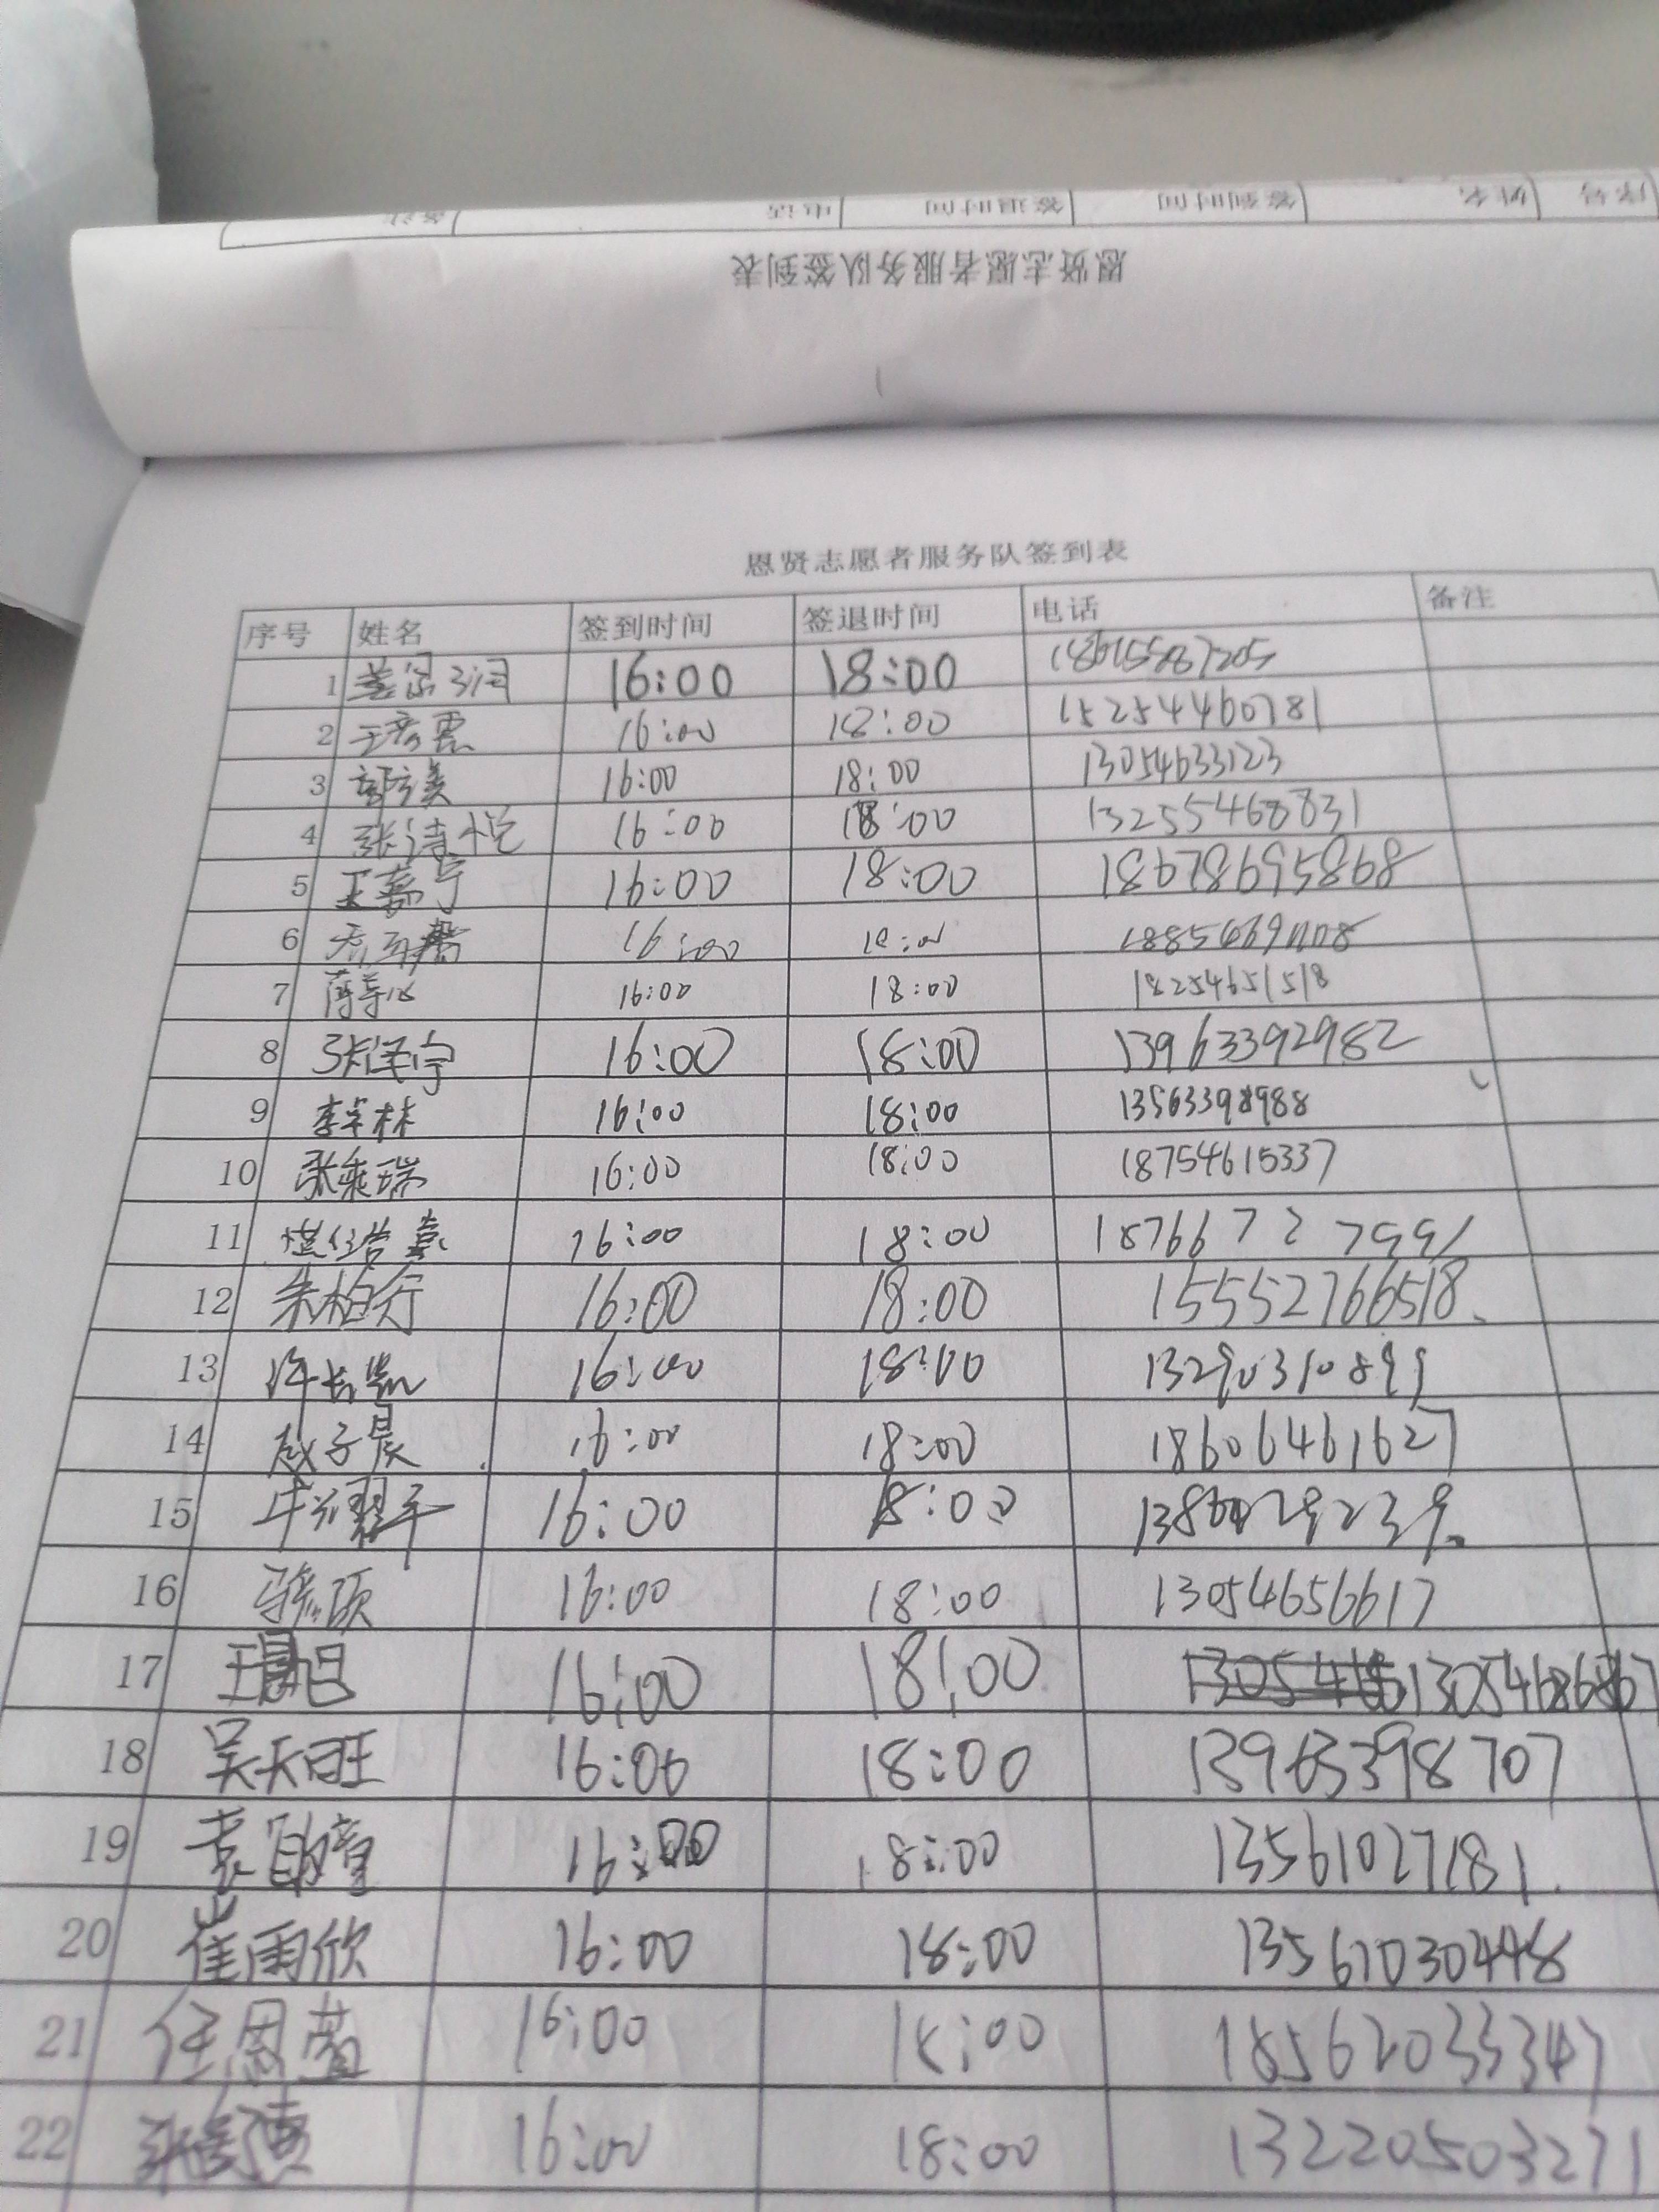 序号 姓名 签到时间 签退时间 电话
恩贤志愿者服务队签到表
恩贤志愿者服务队签到表
序号 姓名 签到时间 签退时间 电话 备注
1 16:00 18:00 18615587205
2 王彦霖 16:00 18:00 15254460781
3 16:00 18:00 13054633123
4 张诗悦 16:00 18:00 13255468831
5 王嘉宁 16:00 18:00 18678695868
6 16:00
7 16:00 18:00 18254651518
8 张泽宇 16:00 18:00 13963392982
9 李卓林 16:00 18:00 13563398988
10 张乘瑞 16:00 18:00 18754615337
11 16:00 18:00 18766727991
12 朱柏行 16:00 18:00 15552766518
13 许长凯 16:00 18:00 13290310899
14 赵子晨 16:00 18:00 18606461627
15 牛耀平 16:00 18:00
16 16:00 18:00 13054656617
17 16:00 18:00 13054686867
18 吴天旺 16:00 18:00 13963398707
19 袁韵童 16:00 18:00 13561027181
20 崔雨欣 16:00 18:00 13561030448
21 任恩萱 16:00 18:00 18562033347
22 16:00 18:00 13220503271